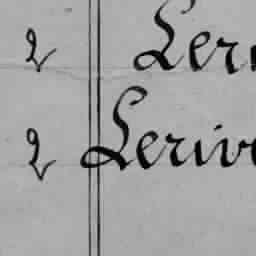 2 Ler
2 Leriv